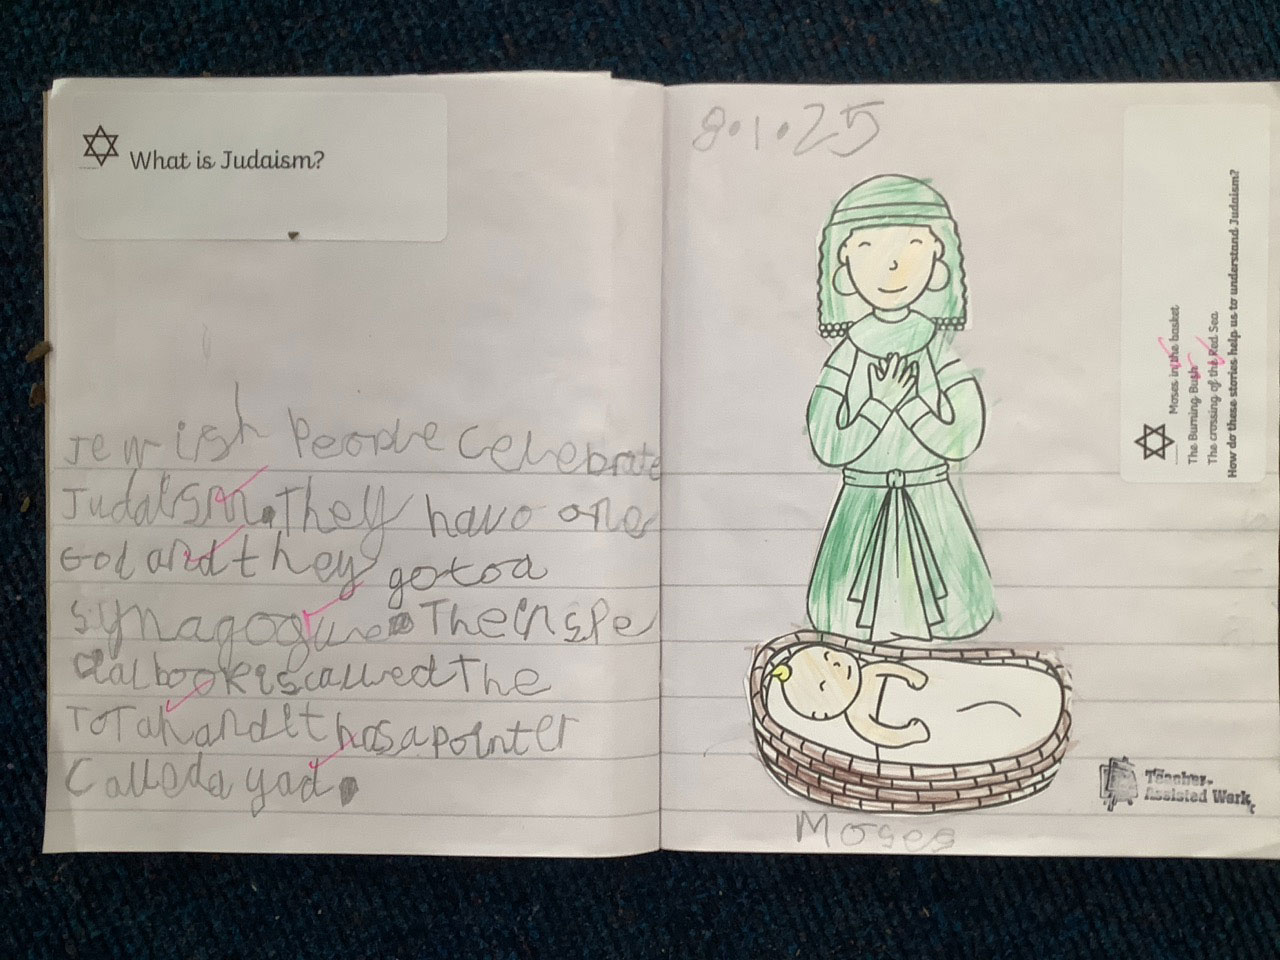 What is Judaism?
Jewish People Celebrate
Judaism. They have one
God and they go to a
synagogue. Their spe
cial book is called The
Torah and it has a pointer
Called a yad.
8.1.25
Moses in the basket
The Burning Bush
The crossing of the Red Sea
How do these stories help us to understand Judaism?
Teacher-
Assisted Work
Moses